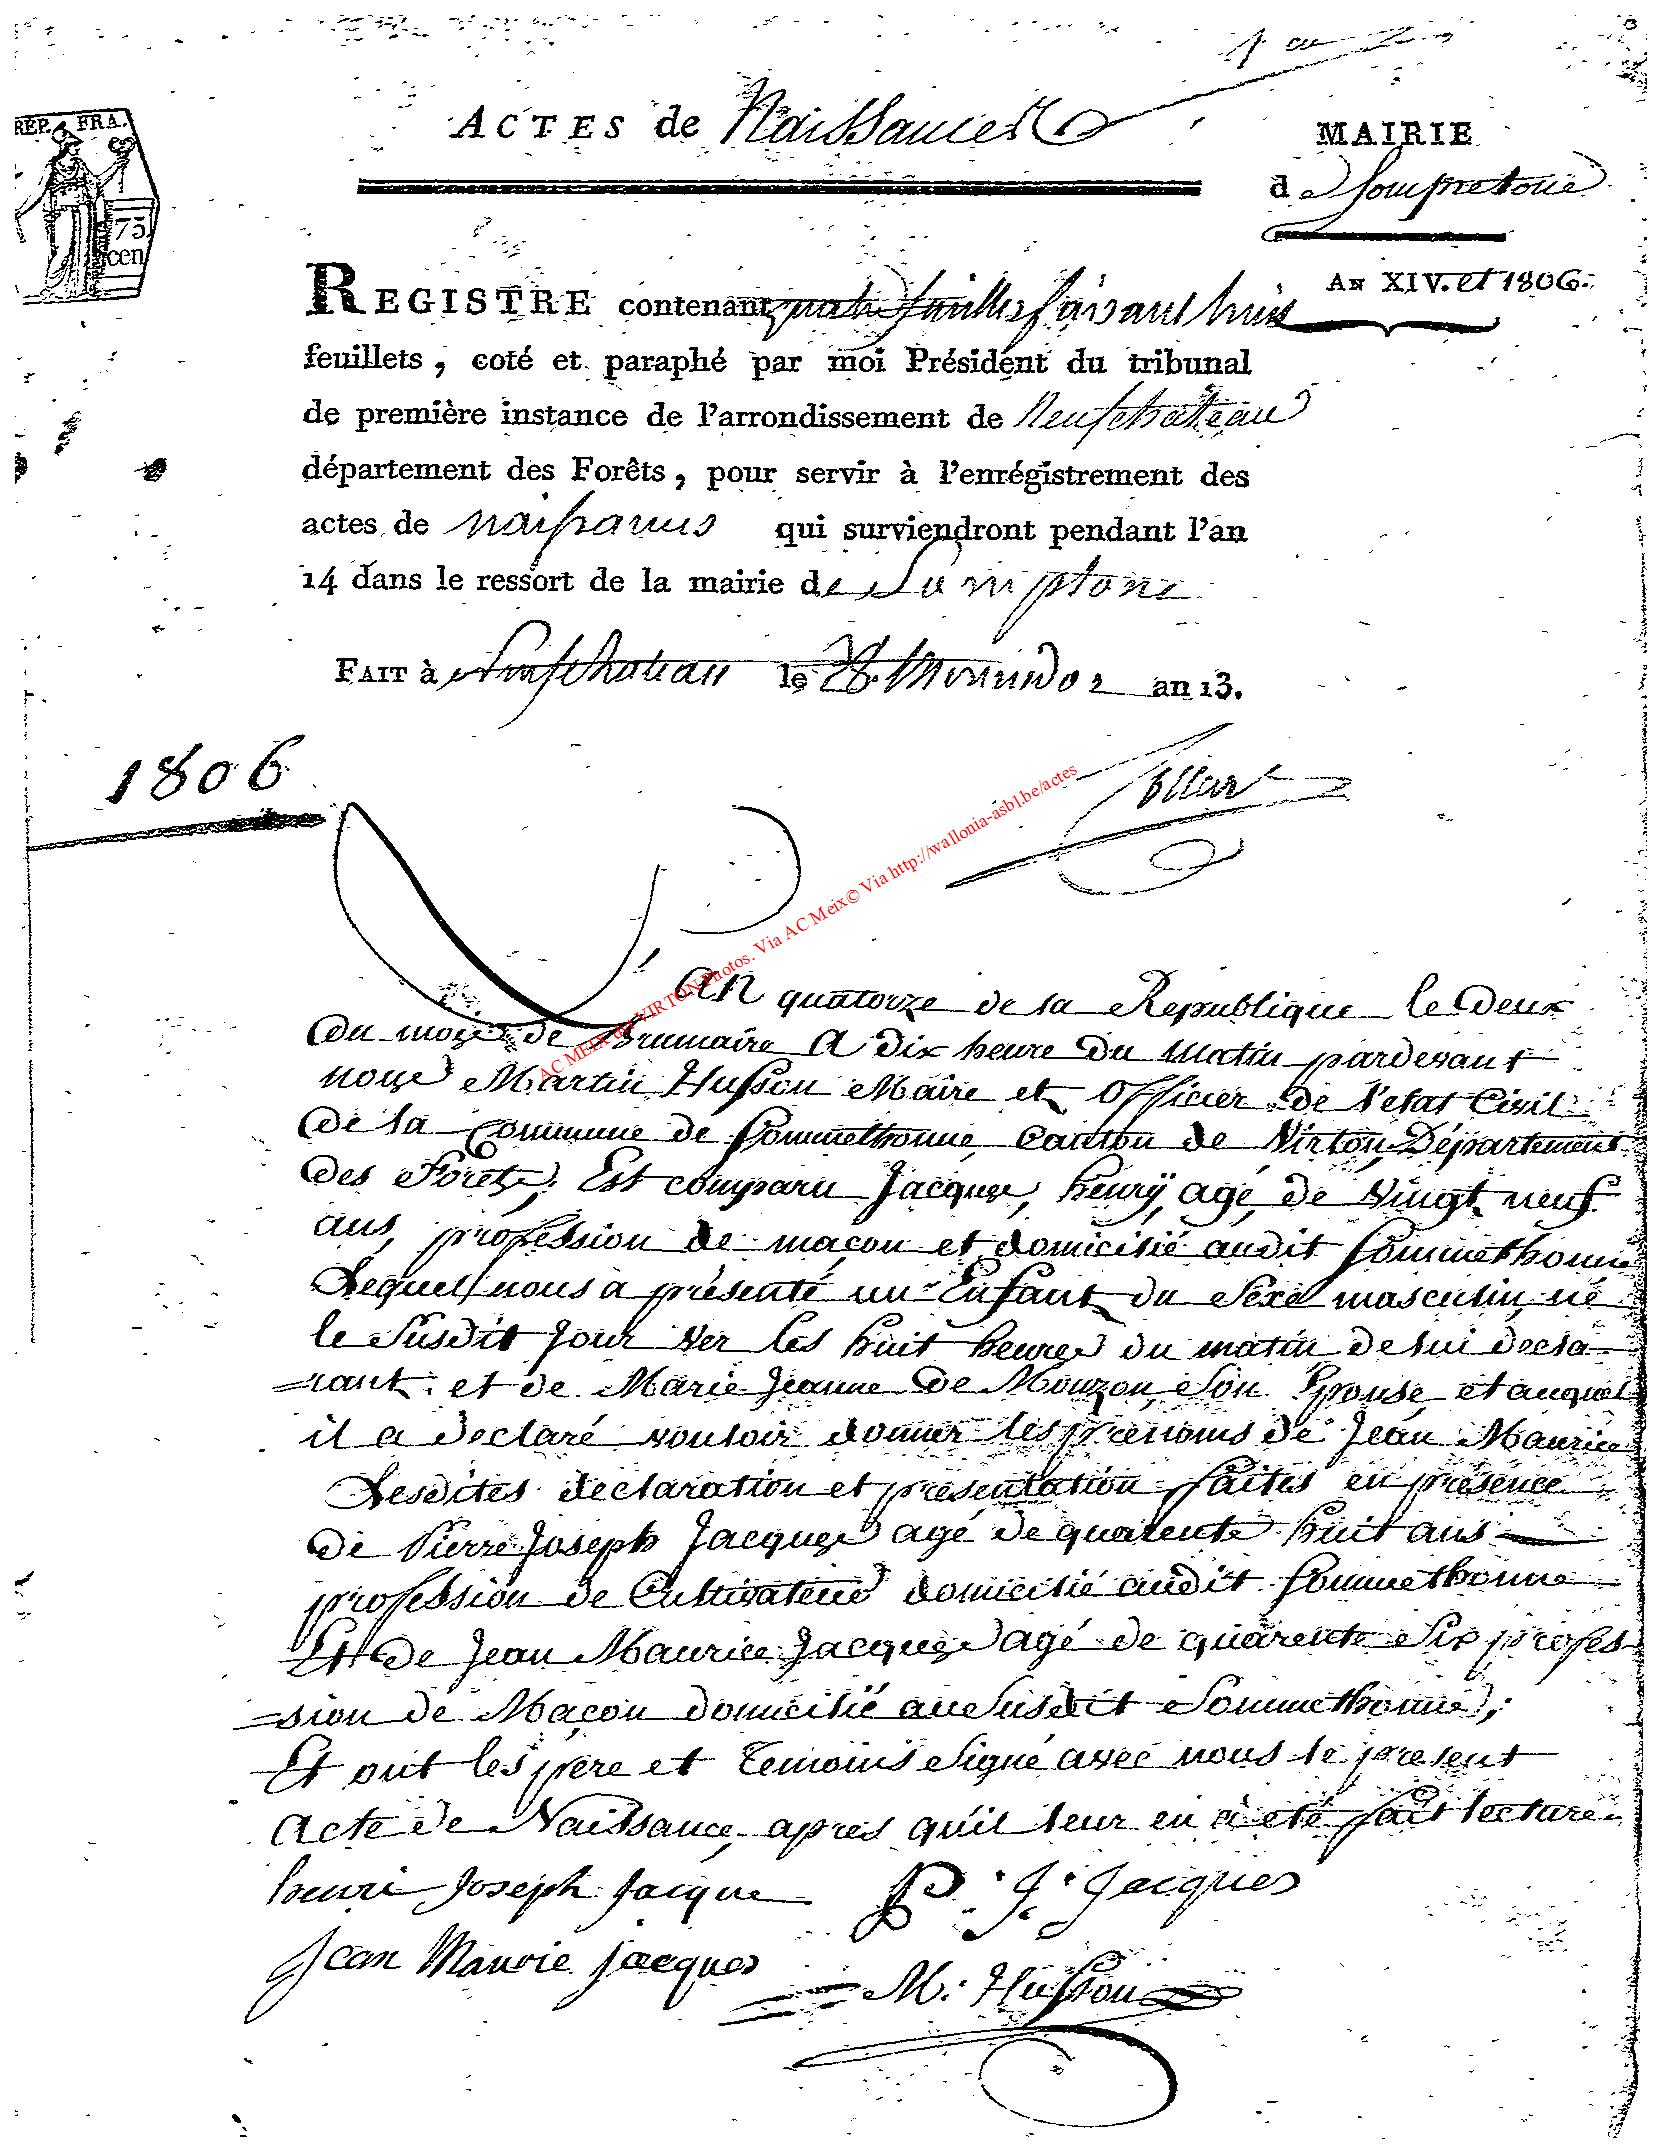 ACTES de Naissances
REP. FRA.
75
cen
MAIRIE
de Sompretone
AN XIV. et 1806.
REGISTRE contenant quatre feuilles faisant huit
feuillets, coté et paraphé par moi Président du tribunal
de première instance de l'arrondissement de Neufchateau
département des Forêts, pour servir à l'enrégistrement des
actes de naissances qui surviendront pendant l'an
14 dans le ressort de la mairie de
FAIT à Neufchateau le 28. Messidor an 13.
1806
AC MEIX dt VIRTON Photos. Via AC Meix© Via http://wallonia-asbl.be/actes
L'An quatorze de la Republique le deux
du mois de Brumaire A dix heure du matin pardevant
nous Martin Husson Maire et Officier de l'etat Civil
de la Commune de Sommethonne, Canton de Virton, Département
des Forets, Est comparu Jacques, henrÿ, agé, de vingt neuf
ans, profession de maçon et domicilié audit Sommethonne
Lequel nous a présenté un Enfant du Sexe masculin, né
le Susdit Jour ver les huit heures du matin de lui decla=
=rant. et de Marie Jeanne De Mouzon, Son Epouse, et auquel
il a declaré vouloir donner les prenoms de Jean Maurice
Lesdites declaration et présentation faites en présence
de Pierre Joseph Jacques agé de quarente huit ans
profession de Cultivateur domicilié audit Sommethonne
Et de Jean Maurice Jacques agé de quarente Six profes=
=sion de Maçon domicilié au Susdit Sommethonne;
Et ont les pere et temoins Signé avec nous le present
Acte de Naissance, apres qu'il leur en a eté fait lecture
henri Joseph Jacque P. J. Jacques
Jean Maurie jacques
M. Husson